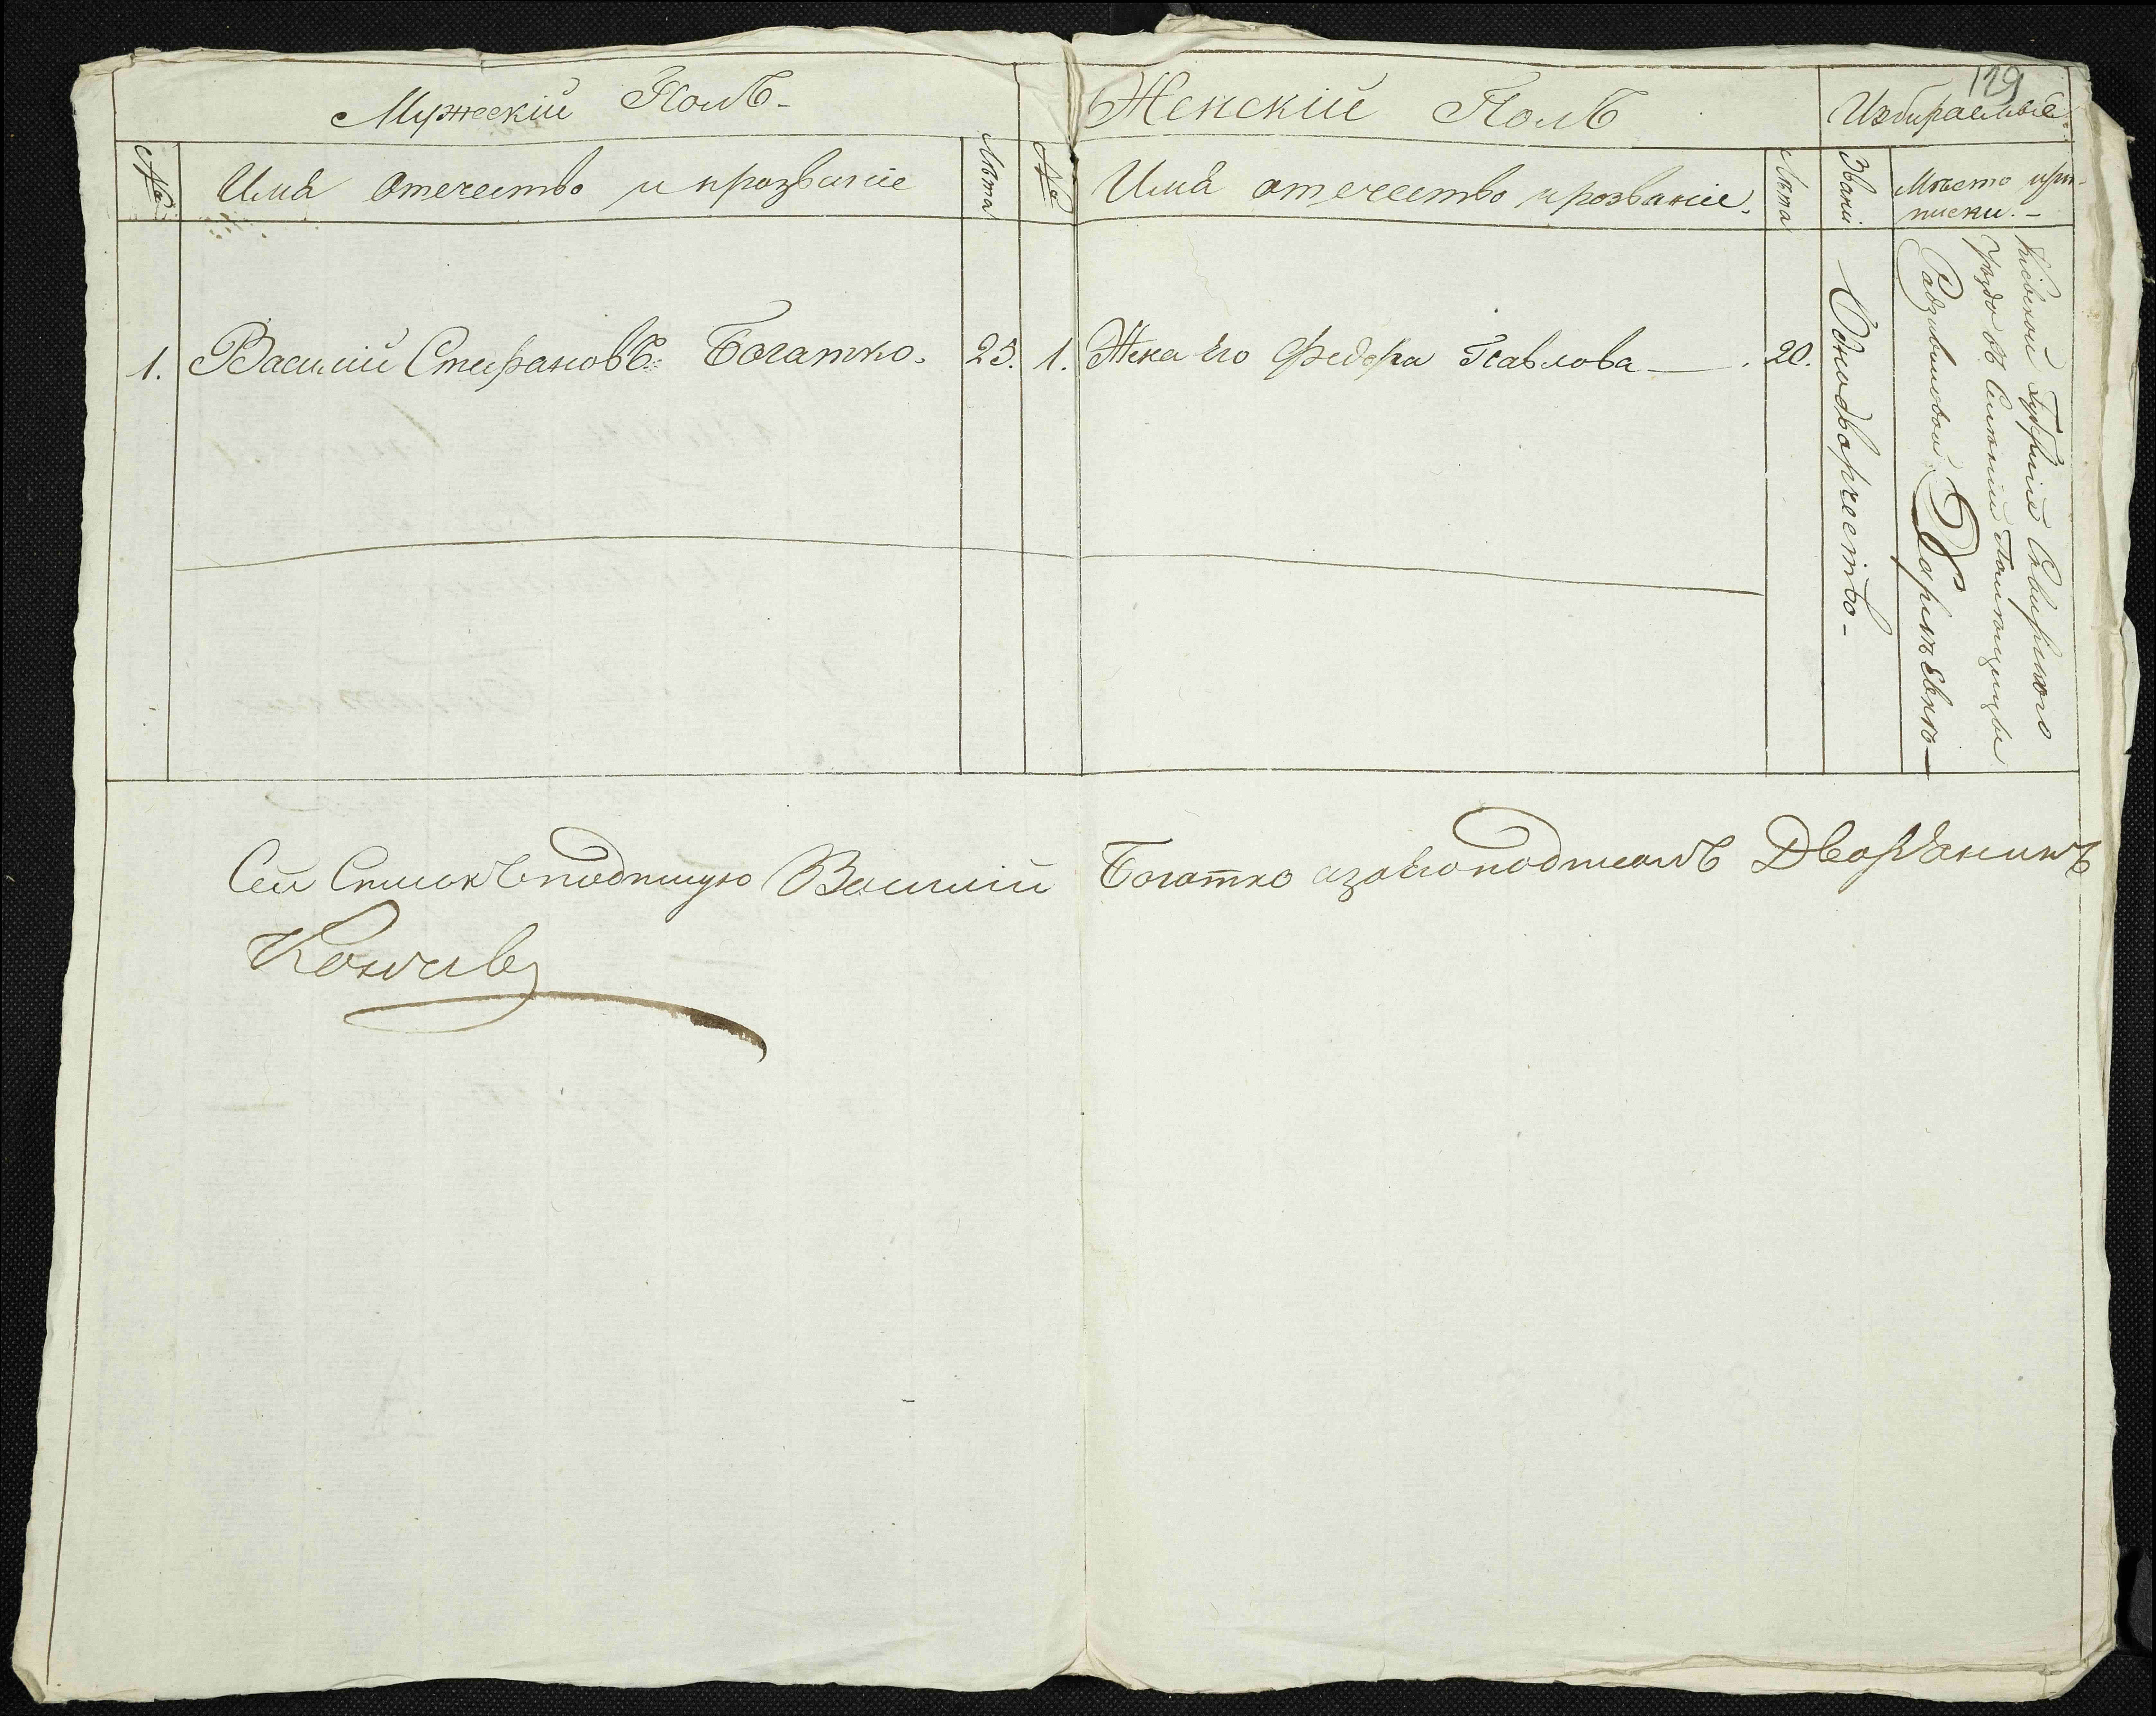 129
Мужескій Полъ
Женскій Полъ
Избираемые
№
Имя отечество и прозваніе
Лѣта
№
Имя отечество и прозваніе.
Лѣта
Званіи
Место при-
писки.
1. Василий Стефановъ Богатко. 23.
1. Жена его Федора Павлова — 20.
Однодворчество
Кіевской Губерніи Сквирского
уезда въ Селеніи Помещицы
Радзивиловой
Сей Списокъ подпишую Василий Богатко а за его подписалъ Дворянинъ